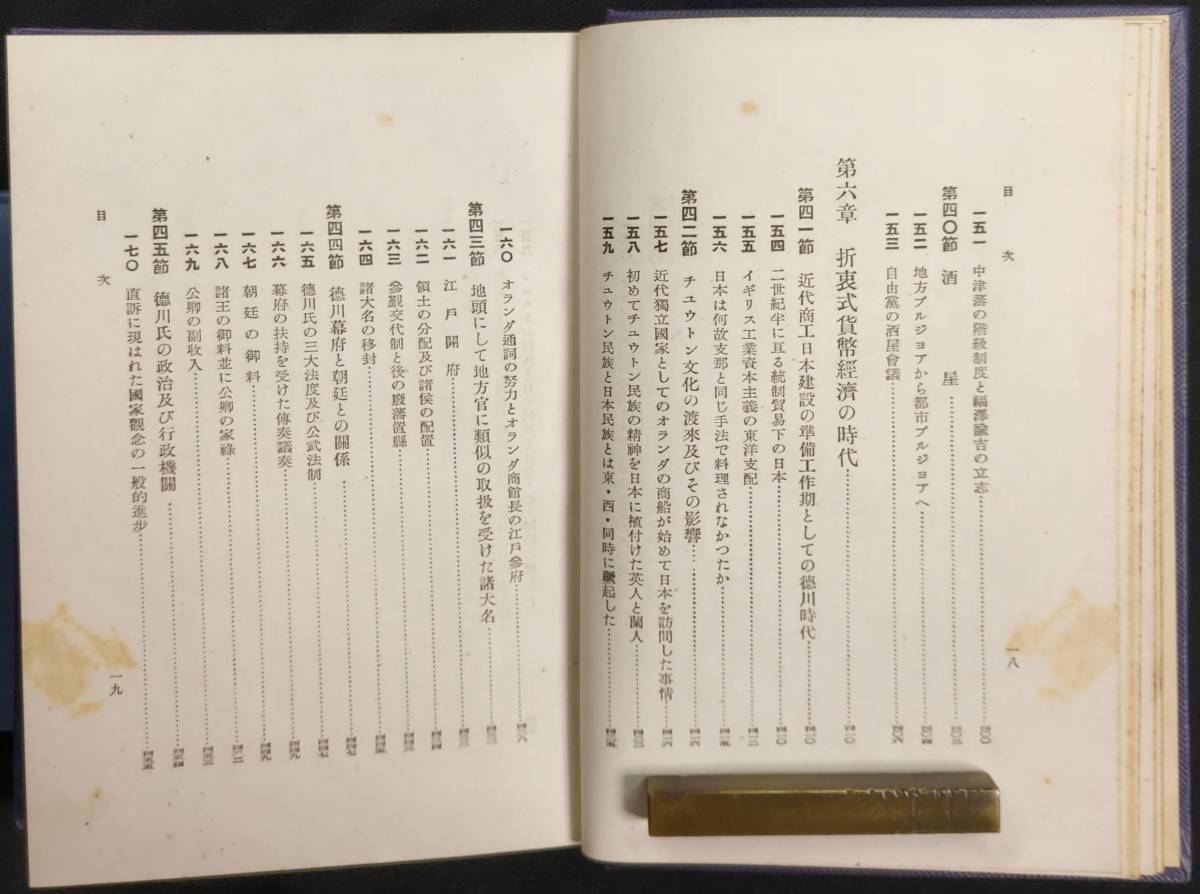 目次
一五一 中津藩の階級制度と福澤諭吉の立志
第四〇節 酒屋
一五二 地方ブルジョアから都市ブルジョアへ
一五三 自由黨の酒屋會議
第六章 折衷式貨幣經濟の時代
第四一節 近代商工日本建設の準備工作期としての德川時代
一五四 二世紀半に亙る統制貿易下の日本
一五五 イギリス工業資本主義の東洋支配
一五六 日本は何故支那と同じ手法で料理されなかつたか
第四二節 チュウトン文化の渡來及びその影響
一五七 近代獨立國家としてのオランダの商船が始めて日本を訪問した事情
一五八 初めてチュウトン民族の精神を日本に植付けた英人と蘭人
一五九 チュウトン民族と日本民族とは東・西・同時に蹶起した
一八
目次
一六〇 オランダ通詞の努力とオランダ商館長の江戸參府
第四三節 地頭にして地方官に類似の取扱を受けた諸大名
一六一 江戸開府
一六二 領土の分配及び諸侯の配置
一六三 參覲交代制と後の廢藩置縣
一六四 諸大名の移封
第四四節 德川幕府と朝廷との關係
一六五 德川氏の三大法度及び公武法制
一六六 幕府の扶持を受けた傳奏議奏
一六七 朝廷の御料
一六八 諸王の御料並に公卿の家祿
一六九 公卿の副收入
第四五節 德川氏の政治及び行政機關
一七〇 直訴に現はれた國家觀念の一般的進步
一九